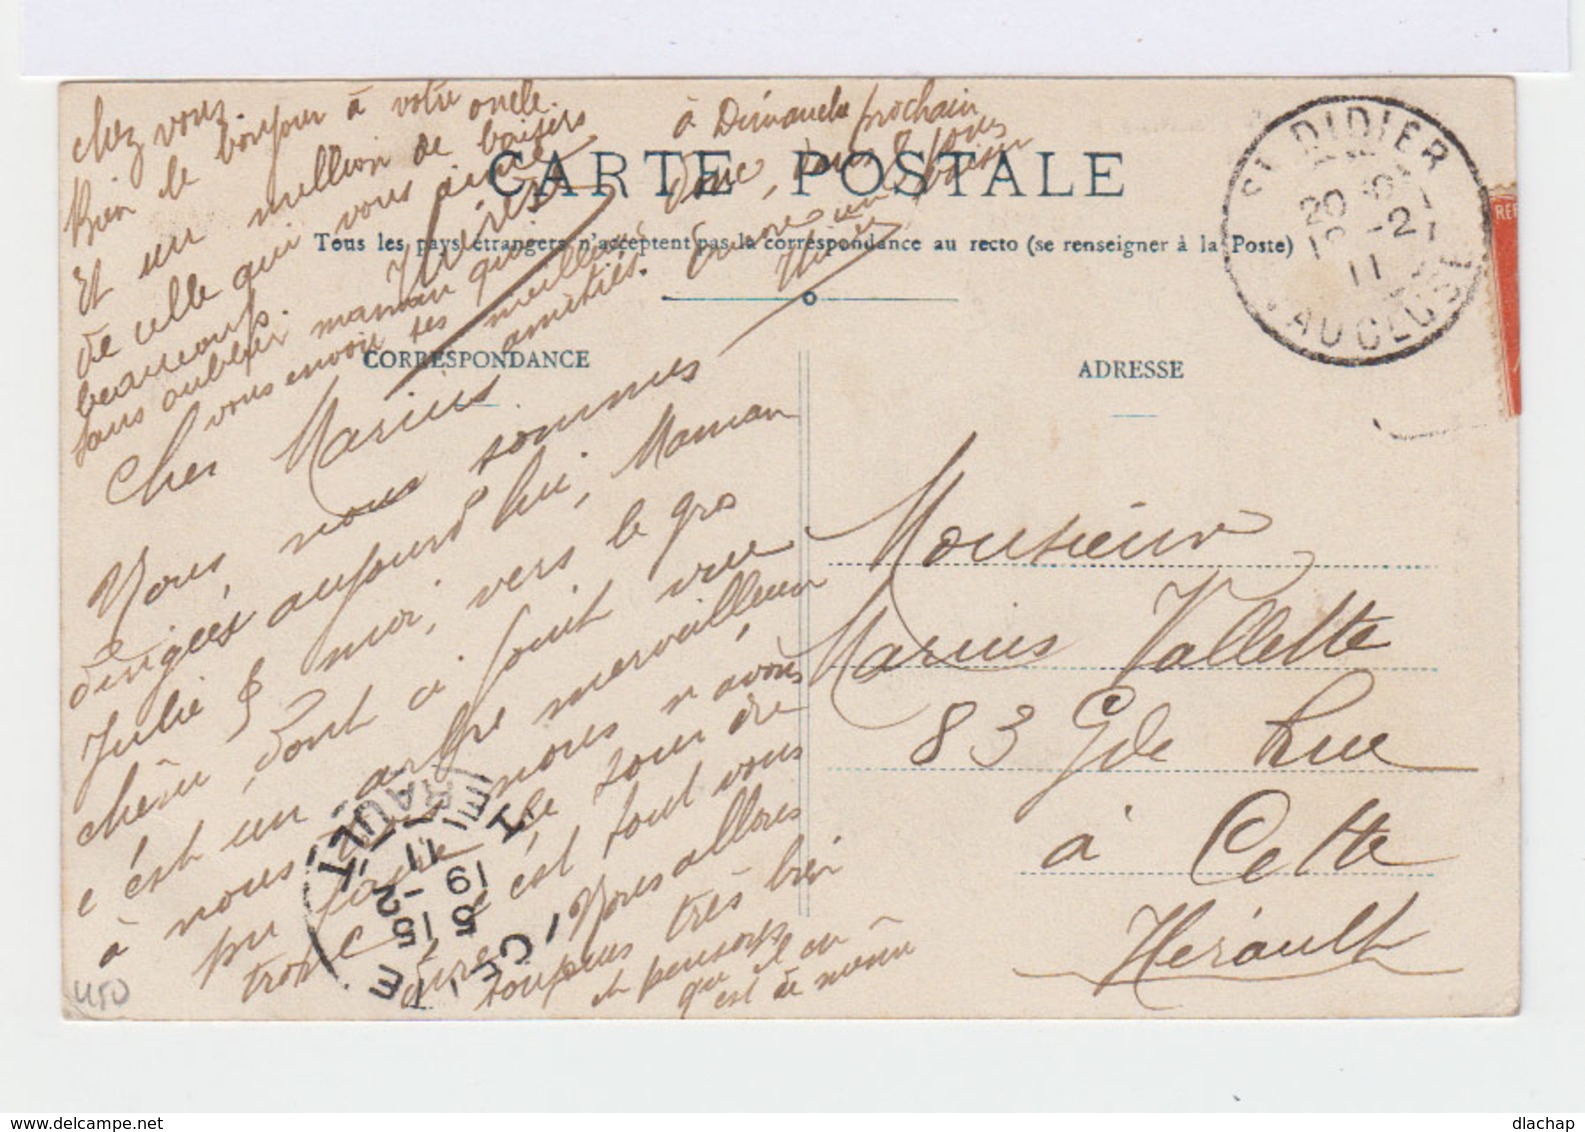 CARTE POSTALE
Tous les pays étrangers n'acceptent pas la correspondance au recto (se renseigner à la Poste)
CORRESPONDANCE
ADRESSE
Cher Marius
Nous nous sommes
dirigées aujourd'hui, Maman
Julie & moi, vers le gros
chêne, dont a joint vue
c'est un arbre merveilleux
à nous nous n'avons
pu faire le tour du
tronc c'est tout vous
dire. Nous allons
toujours très bien
et pensons
qu'il en
est de même
chez vous.
Bien le bonjour à votre oncle.
Et un million de baisers
de celle qui vous aime
beaucoup.
sans oublier maman qui
vous envoie ses meilleures
amitiés.
à Dimanche prochain
donc, tous
Encore un baiser
Monsieur
Marius Vallette
83 Gde Rue
à Cette
Hérault
ST DIDIER
20
-2
11
VAUCLUSE
CETTE
HERAULT
15
19
-2
11
450
dlachap